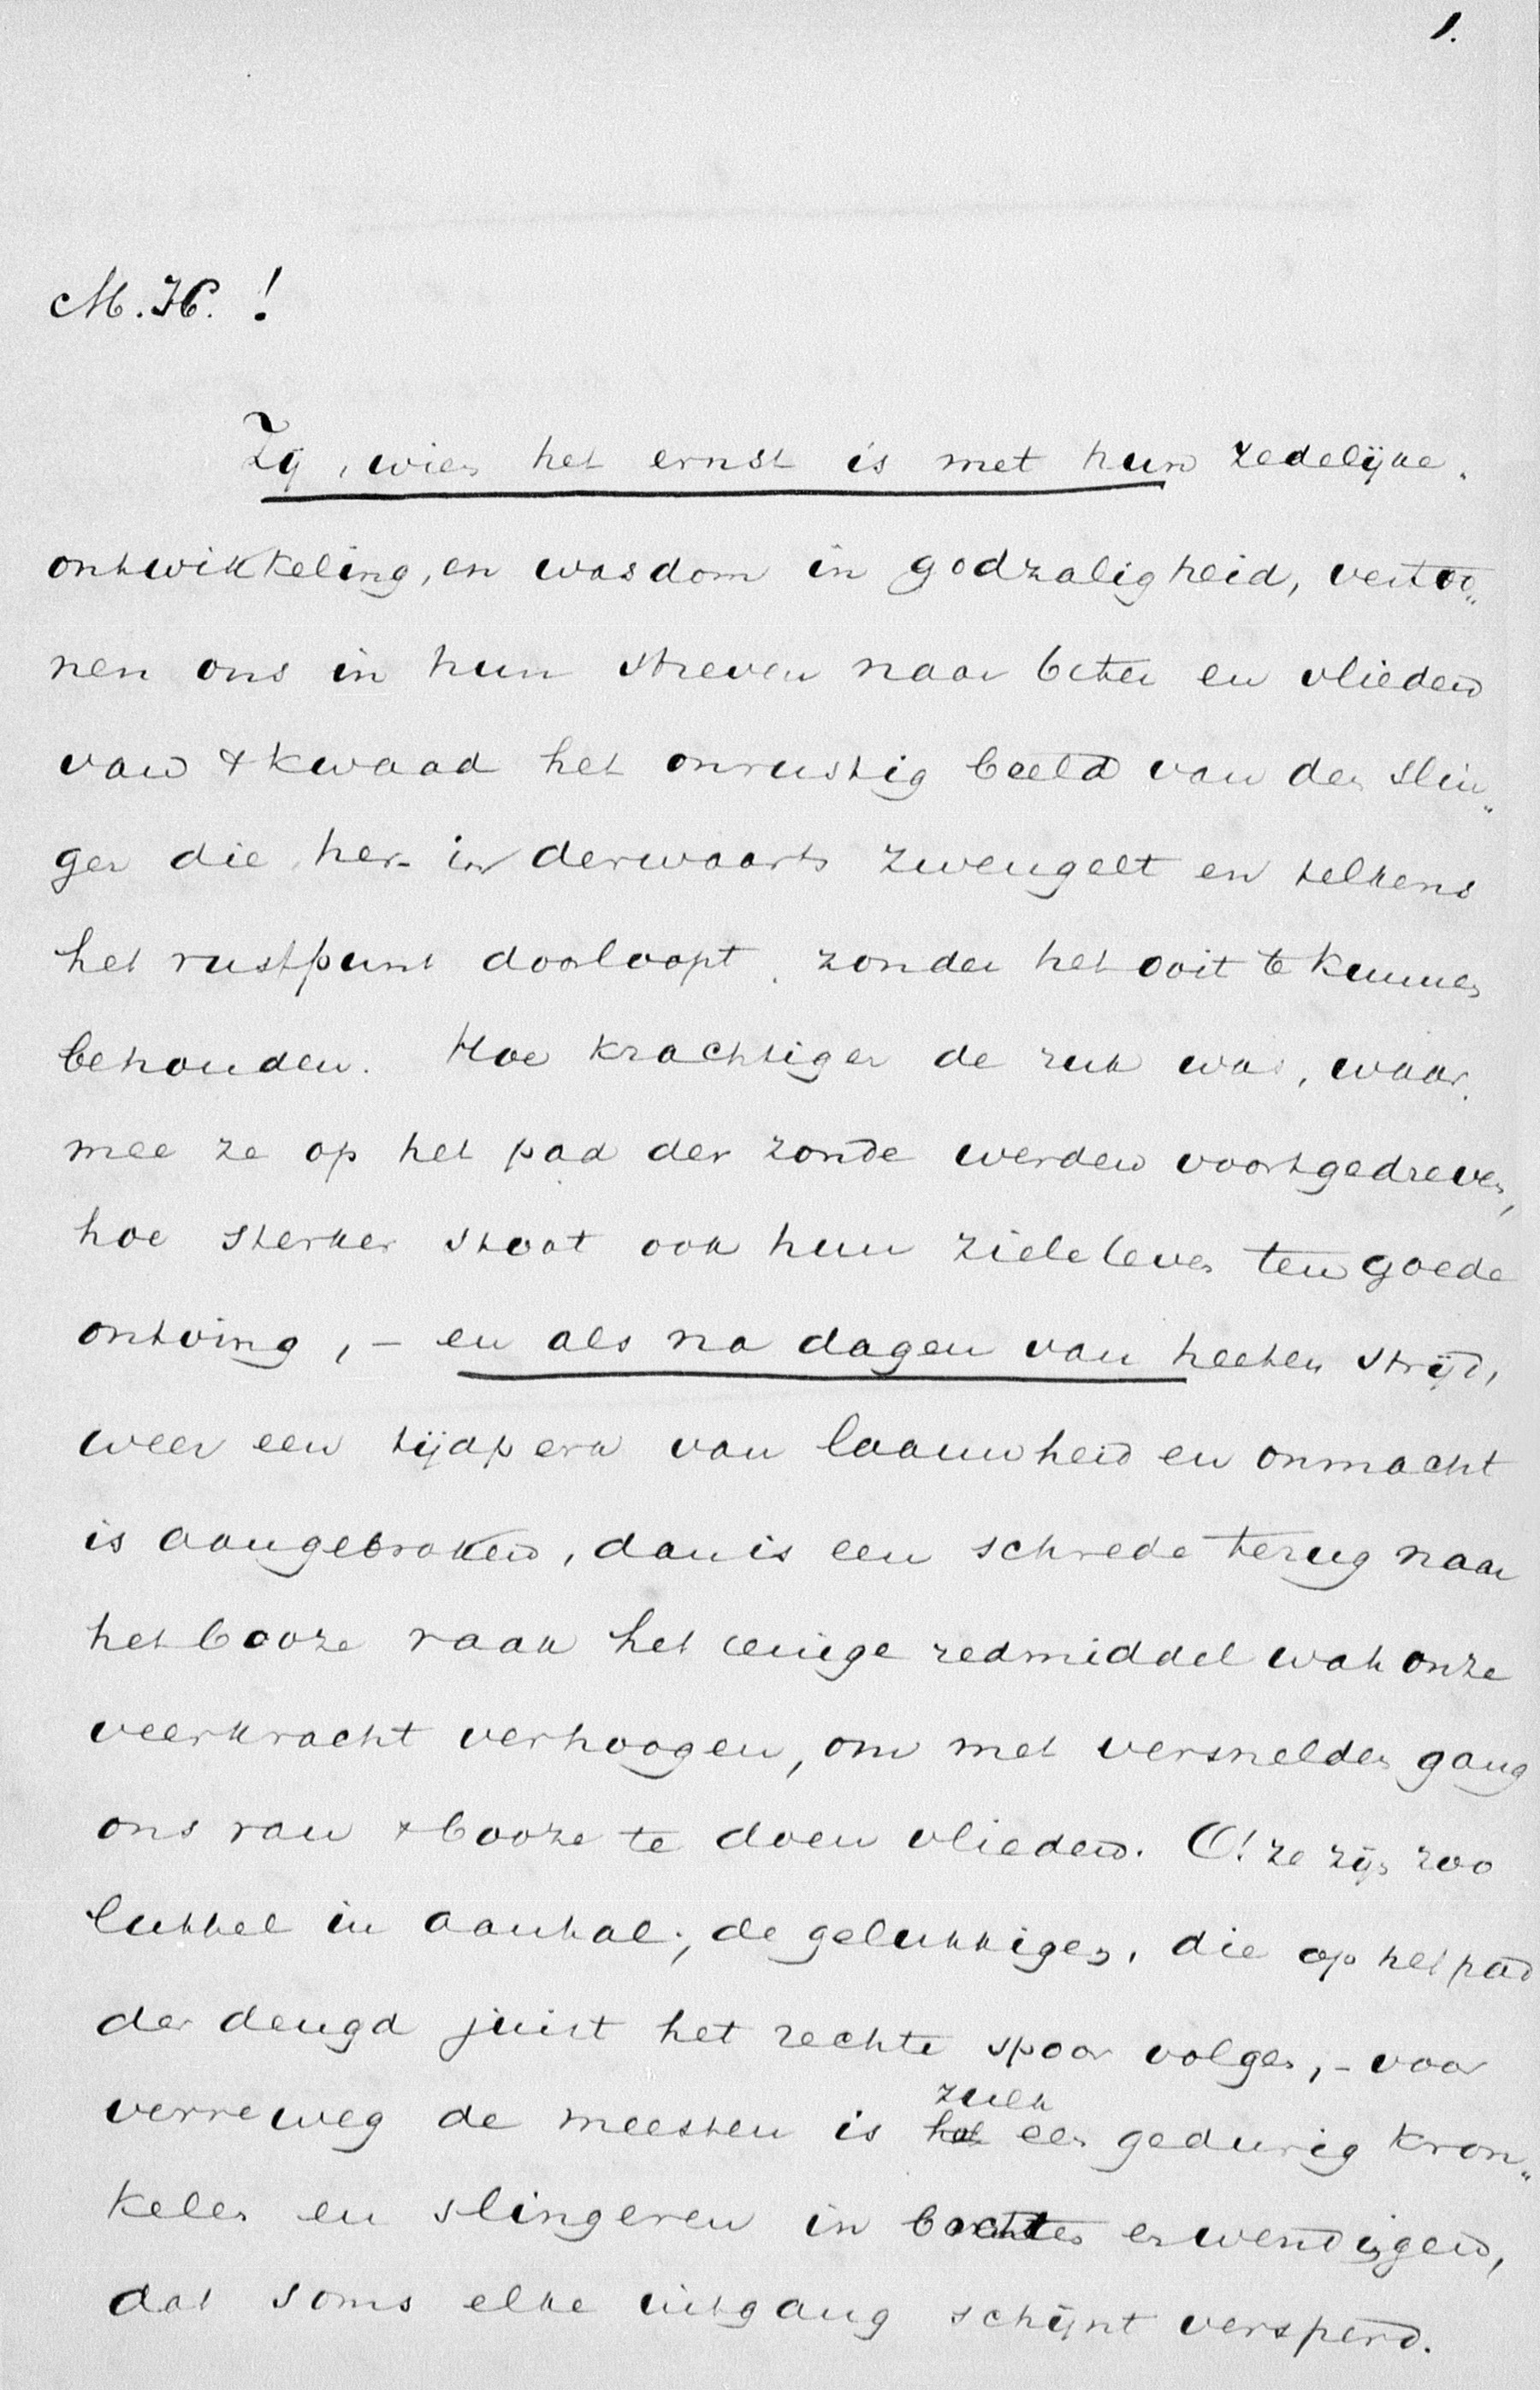 1.
M.H.!
Zij, wien het ernst is met hun zedelijke
ontwikkeling, en wasdom in godzaligheid, vertoo„
nen ons in hun streven naar beter en vlieden
van 't kwaad het onrustig beeld van den slin„
ger die her- en derwaarts zwengelt en telkens
het rustpunt doorloopt, zonder het ooit te kunnen
behouden. Hoe krachtiger de ruk was, waar„
mee ze op het pad der zonde werden voortgedreven,
hoe sterker stoot ook hun zieleleven ten goede
ontving, – en als na dagen van heeten strijd,
weer een tijdperk van laauwheid en onmacht
is aangebroken, dan is een schrede terug naar
het booze vaak het eenige redmiddel wat onze
veerkracht verhoogen, om met versnelden gang
ons van 't booze te doen vlieden. O! ze zijn zoo
luttel in aantal, de gelukkigen, die op het pad
der deugd juist het rechte spoor volgen, – voor
verreweg de meesten is het zulk een gedurig kron„
kelen en slingeren in bochten en wendingen,
dat soms elke uitgang schijnt versperd.